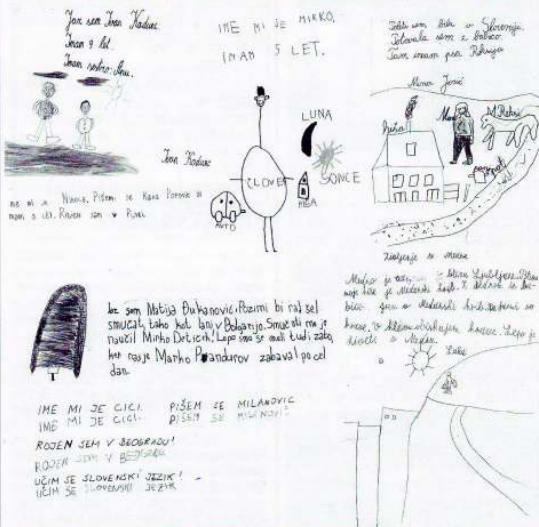 Jaz sem Ivan Kaduc.
Imam 9 let.
Imam sestro: Ano.
Ivan Kaduc
me mi je Nikola. Pišem se Kosa Popovic in
mam 8 let. Rojen sem v Puli.
IME MI JE MIRKO,
IMAM 5 LET.
LUNA
ČLOVEK
SONCE
HIŠA
AVTO
sem bila v Sloveniji.
Potovala sem z babico.
Tam imam psa Reksija
Mima Jerič
hiša
Reksi
Življenje v Mednem
Medno je blizu Ljubljane. Blizu
moje hiše je Medenski hrib.
Lepo je
živeti v Mednem.
Jaz sem Matija Đukanović. Pozimi bi rad šel
smučat, tako kot lani v Bolgarijo. Smučati me je
naučil Mirko Detiček. Lepo smo se imeli tudi zato,
ker nas je Marko Pandurov zabaval po cel
dan.
IME MI JE CICI. PIŠEM SE MILANOVIC
IME MI JE CICI. PIŠEM SE MILANOVIČ
ROJEN SEM V BEOGRADU!
ROJEN SEM V BEOGRADU
UČIM SE SLOVENSKI JEZIK!
UČIM SE SLOVENSKI JEZIK